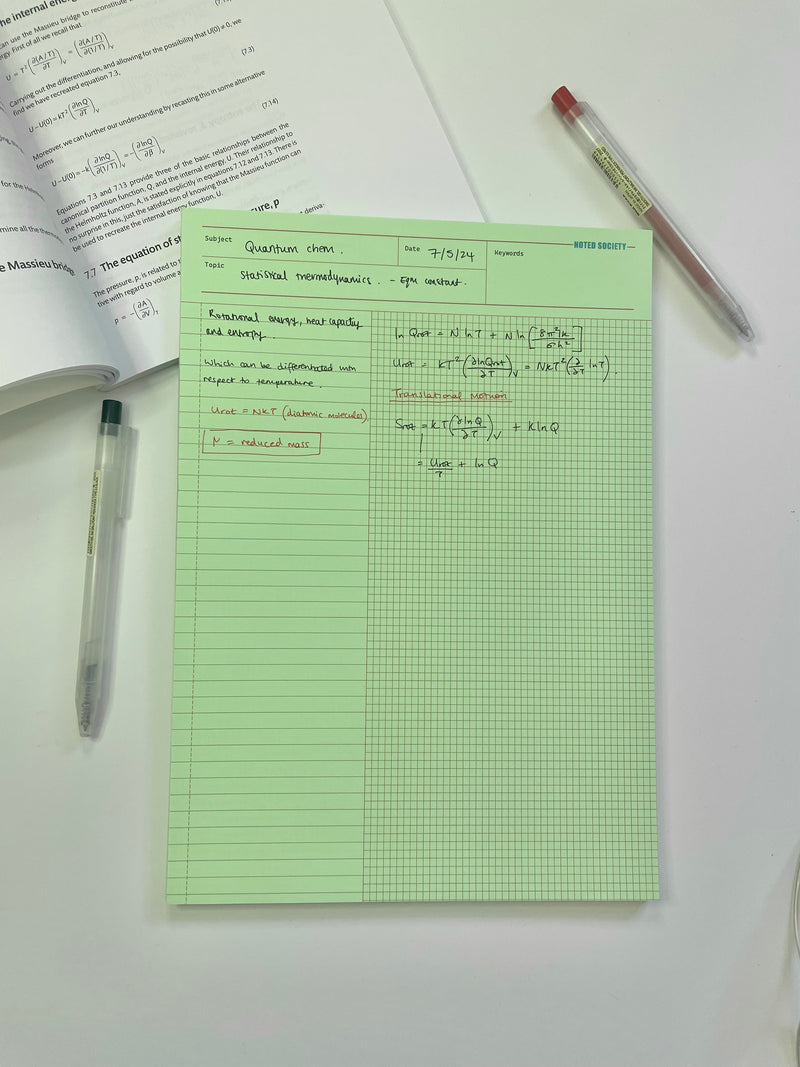 he internal ener
can use the Massieu bridge to reconstitute
rgy. First of all we recall that
U = T²(∂(A/T)/∂T)V = (∂(A/T)/∂(1/T))V
Carrying out the differentiation, and allowing for the possibility that U(0) ≠ 0, we
find we have recreated equation 7.3.
(7.3)
U−U(0)=kT²(∂lnQ/∂T)V
Moreover, we can further our understanding by recasting this in some alternative
forms
(7.14)
U−U(0)=−k(∂lnQ/∂(1/T))V=−(∂lnQ/∂β)V
Equations 7.3 and 7.13 provide three of the basic relationships between the
canonical partition function, Q, and the internal energy, U. Their relationship to
the Helmholtz function, A, is stated explicitly in equations 7.12 and 7.13. There is
no surprise in this, just the satisfaction of knowing that the Massieu function can
be used to recreate the internal energy function, U.
for the Helm
mine all the therm
e Massieu bridge
7.7 The equation of st
ure, p
The pressure, p, is related to t
deriva-
tive with regard to volume a
p = −(∂A/∂V)T
NOTED SOCIETY
Subject
Quantum chem.
Date
7/5/24
Keywords
Topic
Statistical thermodynamics. - Eqm constant.
Rotational energy, heat capacity
and entropy.
Which can be differentiated with
respect to temperature.
Urot = NkT (diatomic molecules)
μ = reduced mass
ln Qrot = N ln T + N ln [8π²Ik/σh²]
Urot = kT²(∂lnQrot/∂T)V = NkT²(∂/∂T lnT).
Translational Motion
Srot = kT(∂lnQ/∂T)V + k ln Q
= Urot/T + ln Q